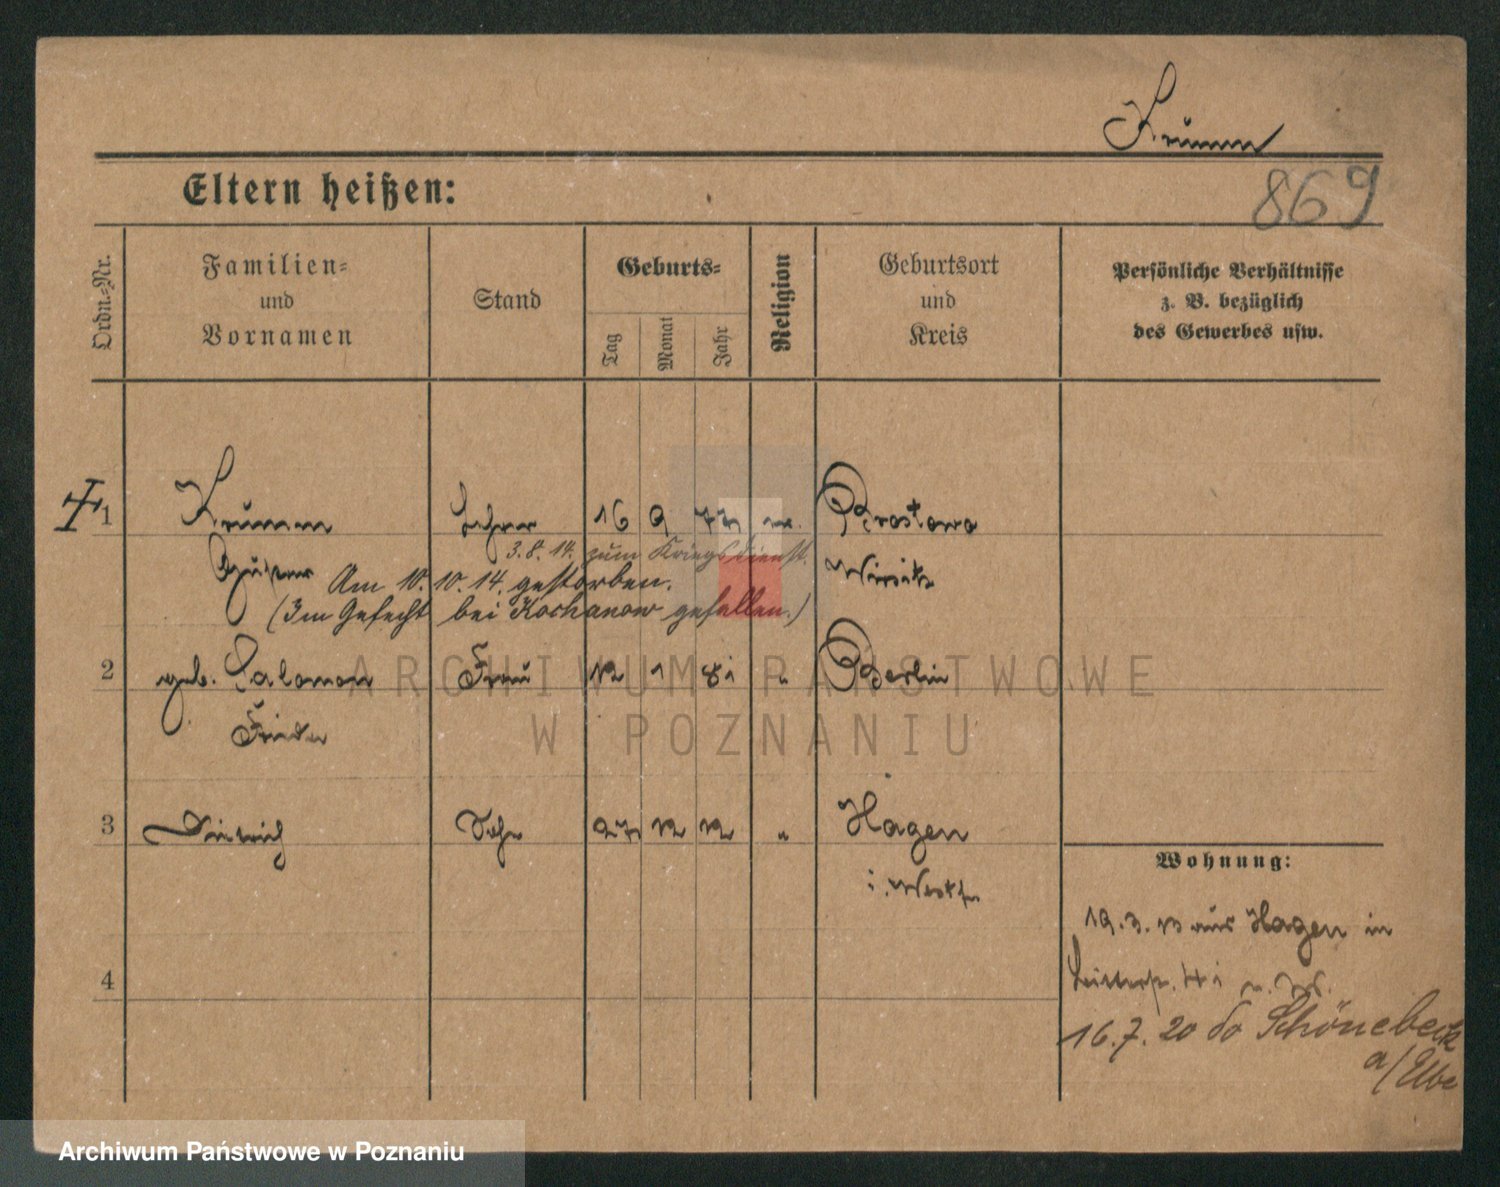 Krumm
Eltern heißen:
869
Ordn.-Nr.
Familien-
und
Vornamen
Stand
Geburts-
Tag
Monat
Jahr
Religion
Geburtsort
und
Kreis
Persönliche Verhältnisse
z. B. bezüglich
des Gewerbes usw.
1 Krumm Lehrer 16 9 77 Brostowo
3.8.14. zum Kriegsdienst.
Wirsitz
Am 10.10.14. gestorben.
(Im Gefecht bei Kochanow gefallen.)
2 geb. Salomon Frau 12 1 81 " Berlin
Frieda
3 Dietrich Sohn 27 12 12 " Hagen
i. Westf.
Wohnung:
19.3.13 aus Hagen in
4
16.7.20 do Schönebeck
a/Elbe
ARCHIWUM PAŃSTWOWE
W POZNANIU
Archiwum Państwowe w Poznaniu